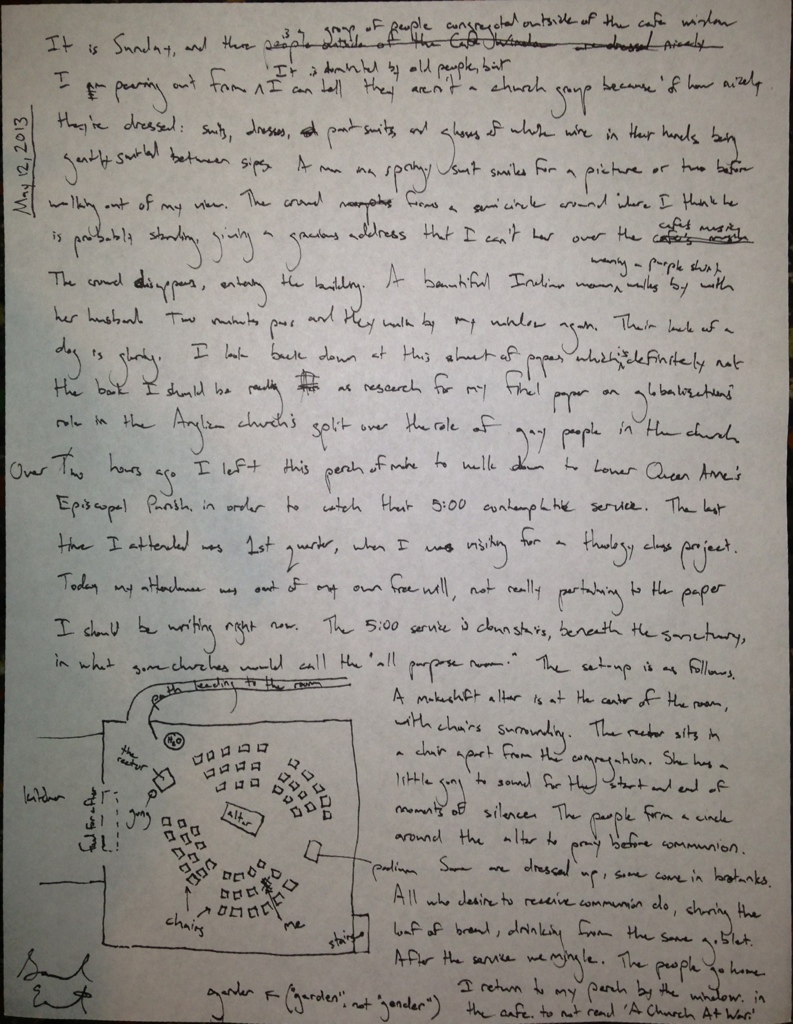 May 12, 2013
It is Sunday, and there is a group of people congregated outside of the cafe window
I am peering out from. It is dominated by old people, but I can tell they aren't a church group because of how nicely
they're dressed: suits, dresses, pant suits and glasses of white wine in their hands being
gently swirled between sips. A man in a springy suit smiles for a picture or two before
walking out of my view. The crowd forms a semi circle around where I think he
is probably standing, giving a gracious address that I can't hear over the cafe's music.
The crowd disappears, entering the building. A beautiful Indian woman wearing a purple shirt walks by with
her husband. Two minutes pass and they walk by my window again. Their lack of a
dog is glaring. I look back down at this sheet of paper which is definitely not
the book I should be reading as research for my final paper on globalization's
role in the Anglican church's split over the role of gay people in the church.
Over Two hours ago I left this perch of mine to walk down to Lower Queen Anne's
Episcopal Parish in order to catch their 5:00 contemplative service. The last
time I attended was 1st quarter, when I was visiting for a theology class project.
Today my attendance was out of my own free will, not really pertaining to the paper
I should be writing right now. The 5:00 service is downstairs, beneath the sanctuary,
in what some churches would call the "all purpose room." The set-up is as follows.
A makeshift altar is at the center of the room,
with chairs surrounding. The rector sits in
a chair apart from the congregation. She has a
little gong to sound for the start and end of
moments of silence. The people form a circle
around the altar to pray before communion.
Some are dressed up, some come in brotanks.
All who desire to receive communion do, sharing the
loaf of bread, drinking from the same goblet.
After the service we mingle. The people go home
I return to my perch by the window in
the cafe. to not read 'A Church At War'
path leading to the room
H2O
the rector
gong
kitchen
food for after
altar
podium
chairs
me
stairs
garden ← ("garden", not "gender")